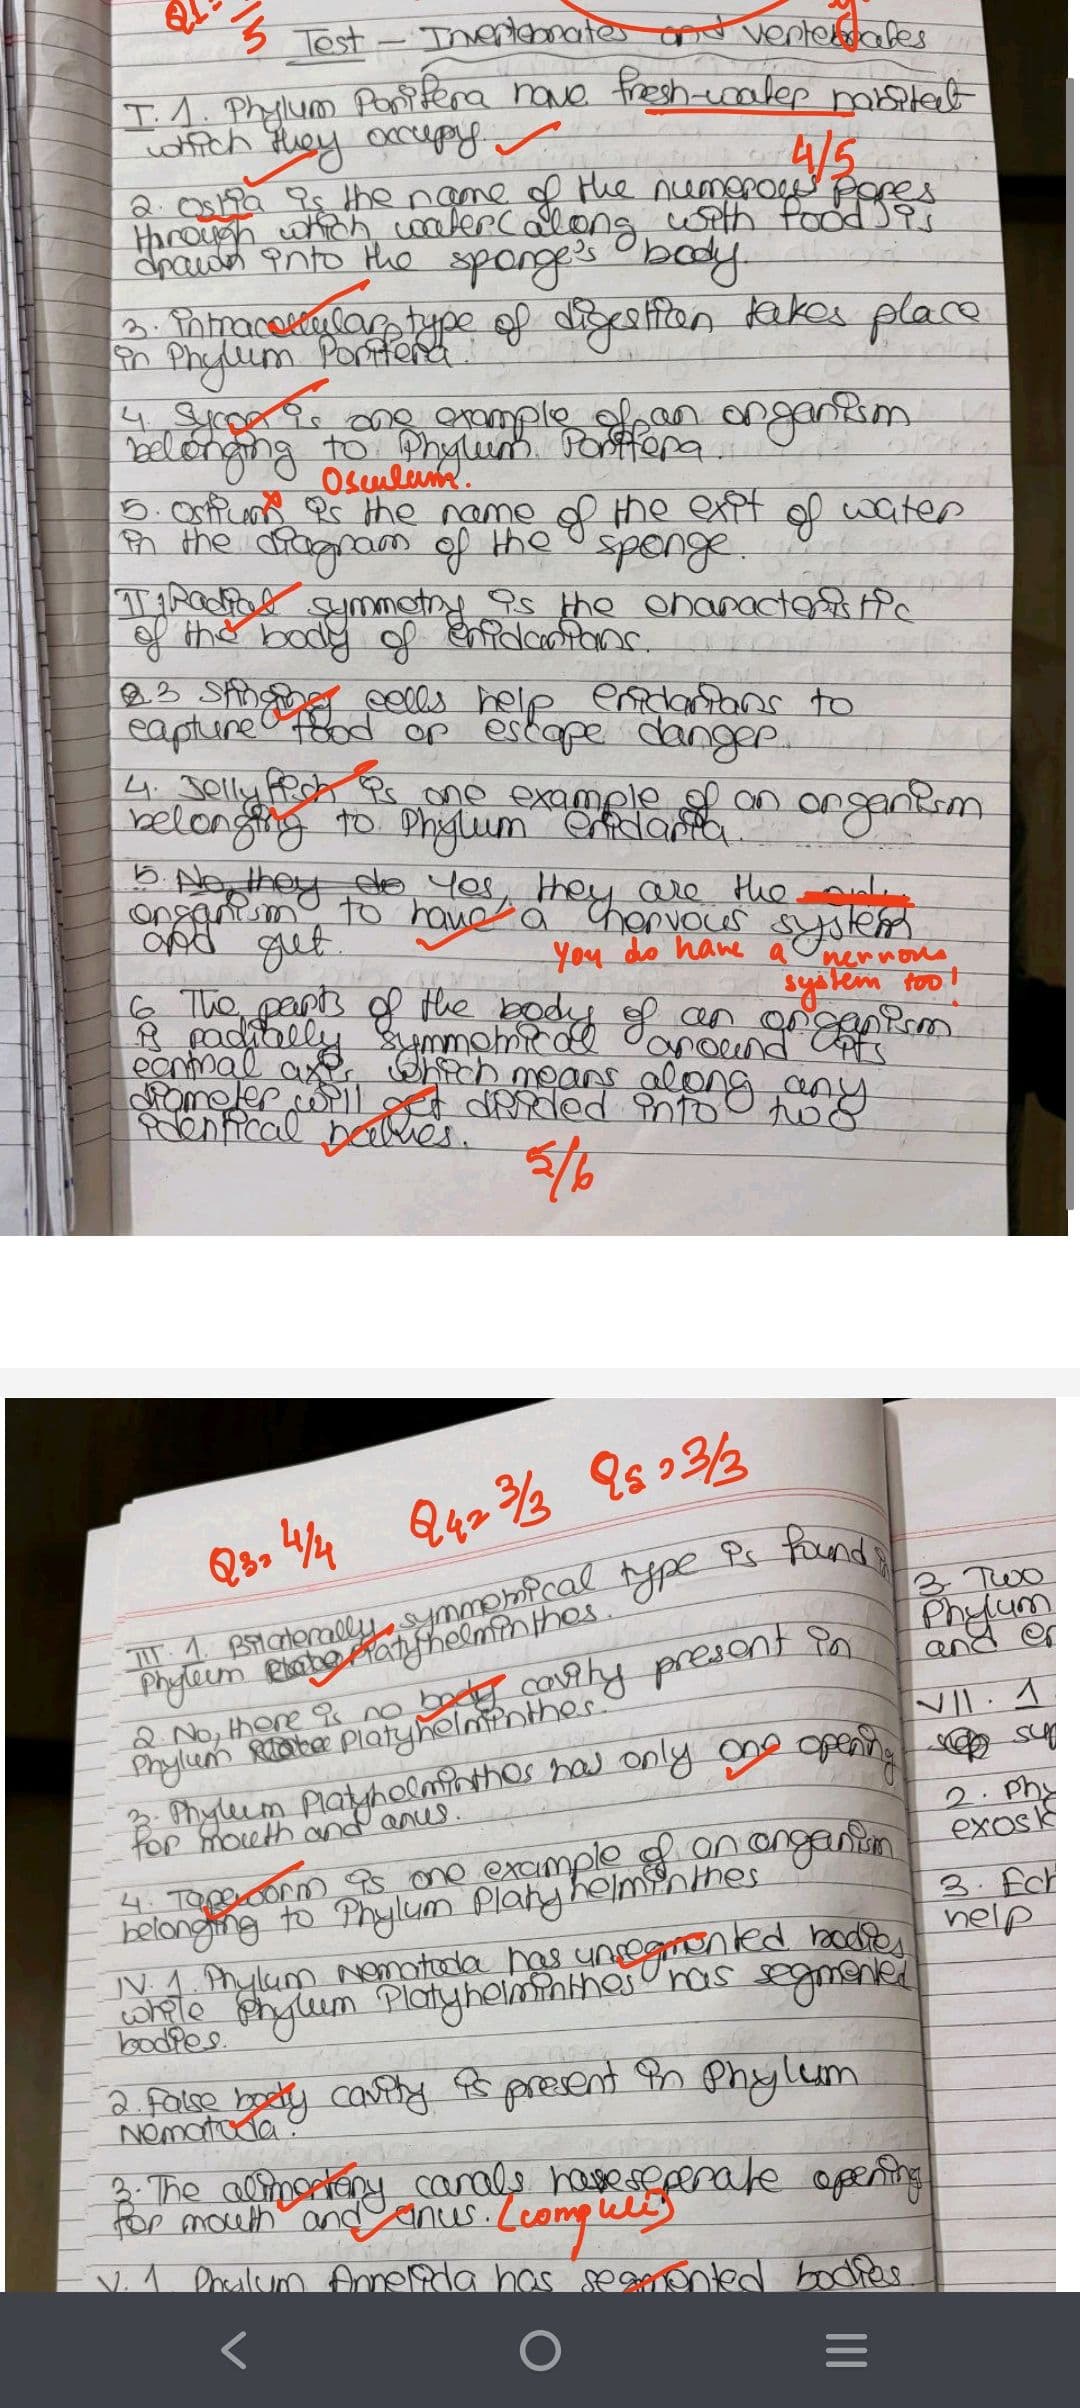 Q1 =
5
Test - Invertebrates and vertebrates
I. 1. Phylum Porifera have fresh-water habitat
which they occupy.
4/5
2. Ostia is the name of the numerous pores
through which water (along with food) is
drawn into the sponge's body.
3. Intracellular type of digestion takes place
in Phylum Porifera.
4. Sycon is one example of an organism
belonging to Phylum Porifera.
Osculum.
5. Ostium is the name of the exit of water
in the diagram of the sponge.
II 1 Radial symmetry is the characteristic
of the body of cnidarians.
2.3 Stinging cells help cnidarians to
capture food or escape danger.
4. Jelly fish is one example of an organism
belonging to Phylum cnidaria.
5. No, they do Yes, they are the only
organism to have a nervous system
and gut.
You do have a nervous
system too!
6 The parts of the body of an organism
is radically symmetrical around its
central axis which means along any
diameter will get divided into two
identical halves.
5/6
Q3= 4/4 Q4= 3/3 Q5 = 3/3
III. 1. Bilaterally symmetrical type is found in
Phylum Platyhelminthes.
2. No, there is no body cavity present in
Phylum Platyhelminthes.
3. Phylum Platyhelminthes has only one opening
for mouth and anus.
4. Tapeworm is one example of an organism
belonging to Phylum Platyhelminthes
IV. 1. Phylum Nematoda has unsegmented bodies
while Phylum Platyhelminthes has segmented
bodies.
2. False body cavity is present in Phylum
Nematoda.
3. The alimentary canals have seperate opening
for mouth and anus. (complete)
V. 1 Phylum Annelida has segmented bodies.
3. Two
Phylum
and
VII. 1
2. Phy
exosk
3. Ech
help